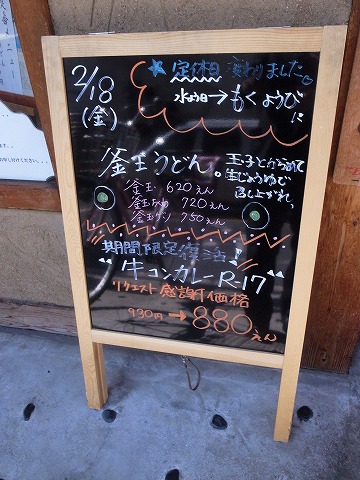 2/18
(金)
★定休日変わりました。
水ようび→もくようび
に
釜玉うどん。
玉子とからめて
生じょうゆで
召し上がれっ
釜玉 620えん
釜玉ちくわ 720えん
750えん
期間限定復活!
"牛コンカレーR-17"
リクエスト感謝価格
930円→880えん